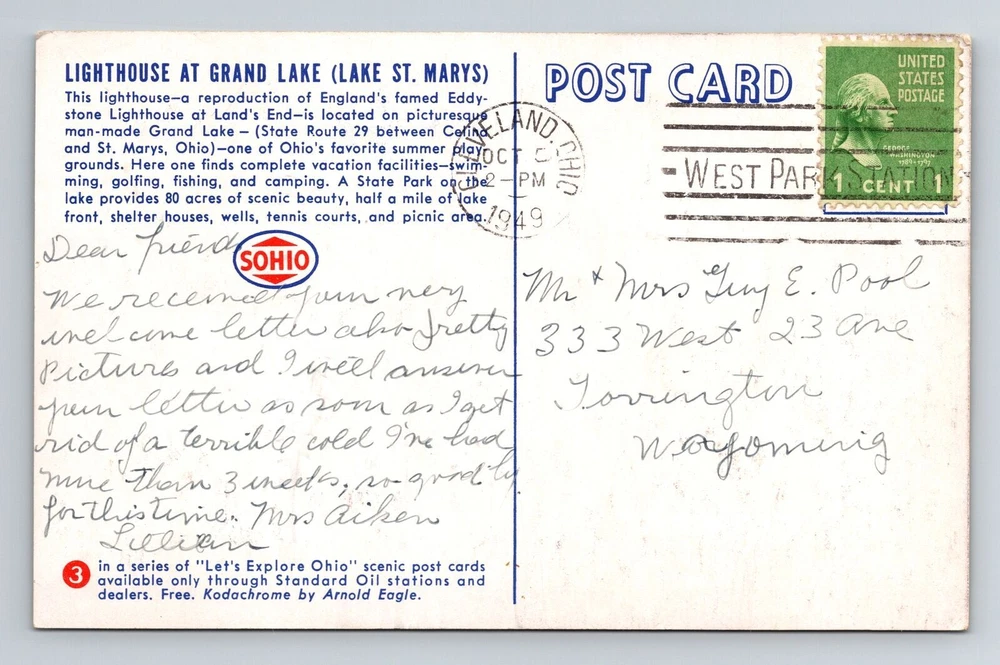 LIGHTHOUSE AT GRAND LAKE (LAKE ST. MARYS)
This lighthouse—a reproduction of England's famed Eddy-
stone Lighthouse at Land's End—is located on picturesque
man-made Grand Lake — (State Route 29 between Celina
and St. Marys, Ohio)—one of Ohio's favorite summer play-
grounds. Here one finds complete vacation facilities—swim-
ming, golfing, fishing, and camping. A State Park on the
lake provides 80 acres of scenic beauty, half a mile of lake
front, shelter houses, wells, tennis courts, and picnic area.
SOHIO
Dear friend
We received your very
welcome letter also pretty
Pictures and I will answer
your letter as soon as I get
rid of a terrible cold I've had
more than 3 weeks, so good by
for this time. Mrs Aiken
Lillian
3
in a series of "Let's Explore Ohio" scenic post cards
available only through Standard Oil stations and
dealers. Free. Kodachrome by Arnold Eagle.
POST CARD
CLEVELAND, OHIO
OCT
2 - PM
1949
WEST PARK STATION
UNITED
STATES
POSTAGE
GEORGE
WASHINGTON
1789-1797
1 CENT 1
Mr & Mrs Guy E. Pool
333 West 23 Ave
Torrington
Wayoming